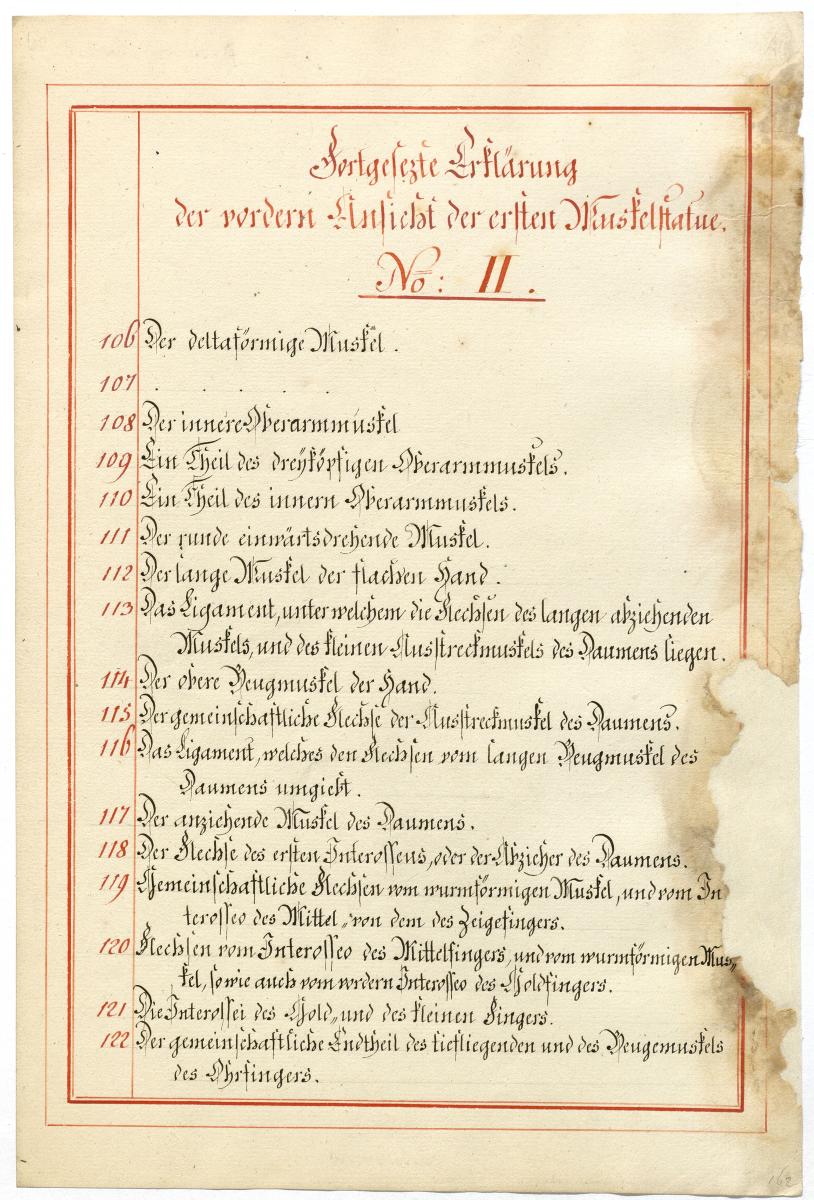 Fortgesezte Erklärung
der vordern Ansicht der ersten Muskelstatue.
No: II.
106 Der deltaförmige Muskel.
107 . . . .
108 Der innere Oberarmmuskel
109 Ein Theil des dreyköpfigen Oberarmmuskels.
110 Ein Theil des innern Oberarmmuskels.
111 Der runde einwärtsdrehende Muskel.
112 Der lange Muskel der flachen Hand.
113 Das Ligament, unter welchem die Flechsen des langen abziehenden
Muskels, und des kleinen Ausstreckmuskels des Daumens liegen.
114 Der obere Beugmuskel der Hand.
115 Der gemeinschaftliche Flechse der Ausstreckmuskel des Daumens.
116 Das Ligament, welches den Flechsen vom langen Beugmuskel des
Daumens umgiebt.
117 Der anziehende Muskel des Daumens.
118 Der Flechse des ersten Interosseus, oder der Abzieher des Daumens.
119 Gemeinschaftliche Flechsen vom wurmförmigen Muskel, und vom In
terosseo des Mittel„ von dem des Zeigefingers.
120 Flechsen vom Interosseo des Mittelfingers, und vom wurmförmigen Mus„
kel, so wie auch vom vordern Interosseo des Goldfingers.
121 Die Interossei des Gold„ und des kleinen Fingers.
122 Der gemeinschaftliche Endtheil des tiefliegenden und des Beugemuskels
des Ohrfingers.
162